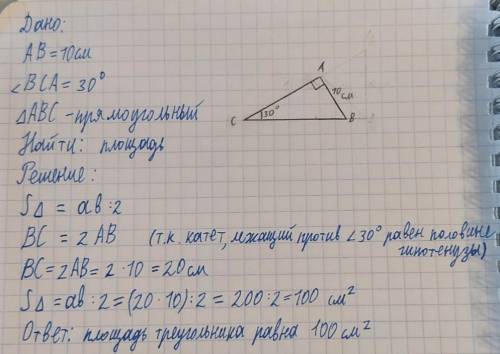 Дано:
AB = 10 см
∠BCA = 30°
△ABC - прямоугольный
Найти: площадь
Решение:
S△ = ab : 2
BC = 2 AB (т.к. катет, лежащий против ∠30° равен половине гипотенузы)
BC = 2AB = 2 · 10 = 20 см
S△ = ab : 2 = (20 · 10) : 2 = 200 : 2 = 100 см²
Ответ: площадь треугольника равна 100 см²
A
10 см
C
30°
B